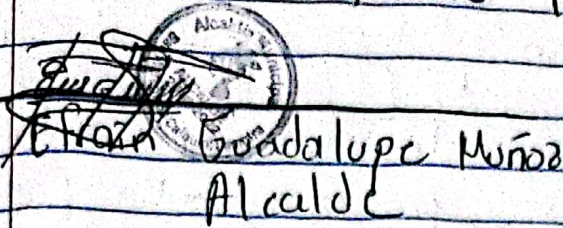 Alcaldía Municipal
Efraín Guadalupe Muñoz
Alcalde